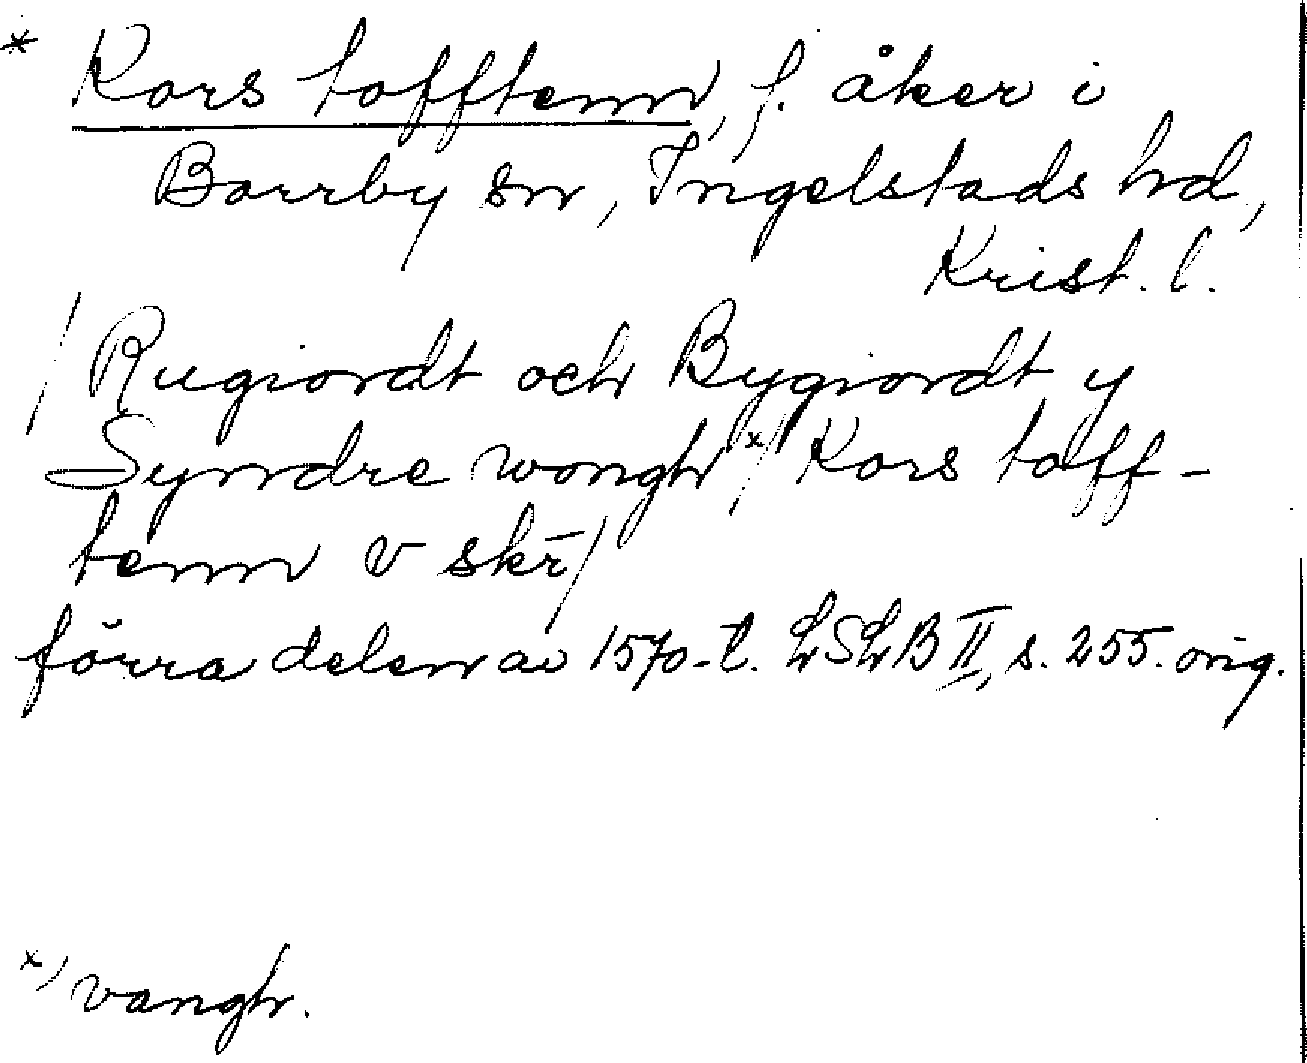 * Kors tofftenn, f. åker i
Borrby sn, Ingelstads hd,
Krist. l.
/ Rugiordt och Bygiordt y
Syndre wongh x) / Kors toff-
tenn v skr̄ /
förra delen av 1570-t. LSLB II, s. 255. orig.
x) vangh.